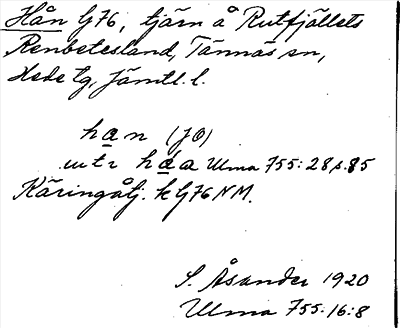 Hån G76, tjärn å Rutfjällets
Renbetesland, Tännäs sn,
Hede tg, Jämtl. l.
han (JÖ)
uttr håa Ulma 755:28 s. 85
Käringåtj. k G76 NM.
S. Åsander 1920
Ulma 755:16:8